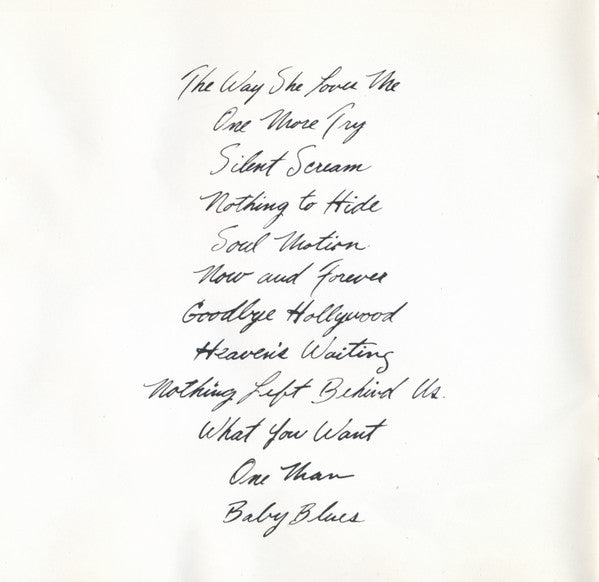 The Way She Loves Me
One More Try
Silent Scream
Nothing to Hide
Soul Motion
Now and Forever
Goodbye Hollywood
Heaven's Waiting
Nothing Left Behind Us
What You Want
One Man
Baby Blues